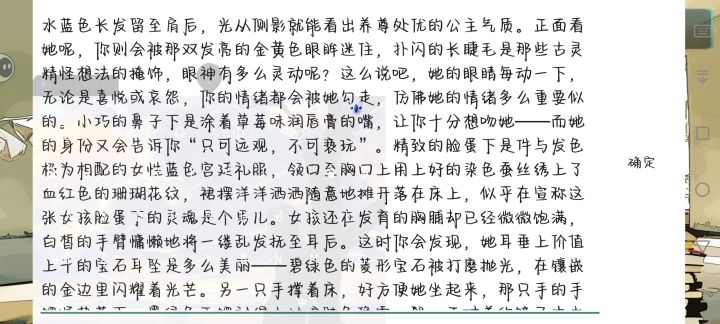 水蓝色长发留至肩后，光从侧影就能看出养尊处优的公主气质。正面看
她呢，你则会被那双发亮的金黄色眼眸迷住，扑闪的长睫毛是那些古灵
精怪想法的掩饰，眼神有多么灵动呢？这么说吧，她的眼睛每动一下，
无论是喜悦或哀怨，你的情绪都会被她勾走，仿佛她的情绪多么重要似
的。小巧的鼻子下是涂着草莓味润唇膏的嘴，让你十分想吻她——而她
的身份又会告诉你“只可远观，不可亵玩”。精致的脸蛋下是件与发色
极为相配的女性蓝色宫廷礼服，领口至胸口上用上好的染色蚕丝绣上了
血红色的珊瑚花纹，裙摆洋洋洒洒随意地摊开落在床上，似乎在宣称这
张女孩脸蛋下的灵魂是个男儿。女孩还在发育的胸脯却已经微微饱满，
白皙的手臂慵懒地将一缕乱发抚至耳后。这时你会发现，她耳垂上价值
上千的宝石耳坠是多么美丽——碧绿色的菱形宝石被打磨抛光，在镶嵌
的金边里闪耀着光芒。另一只手撑着床，好方便她坐起来，那只手的手
确定